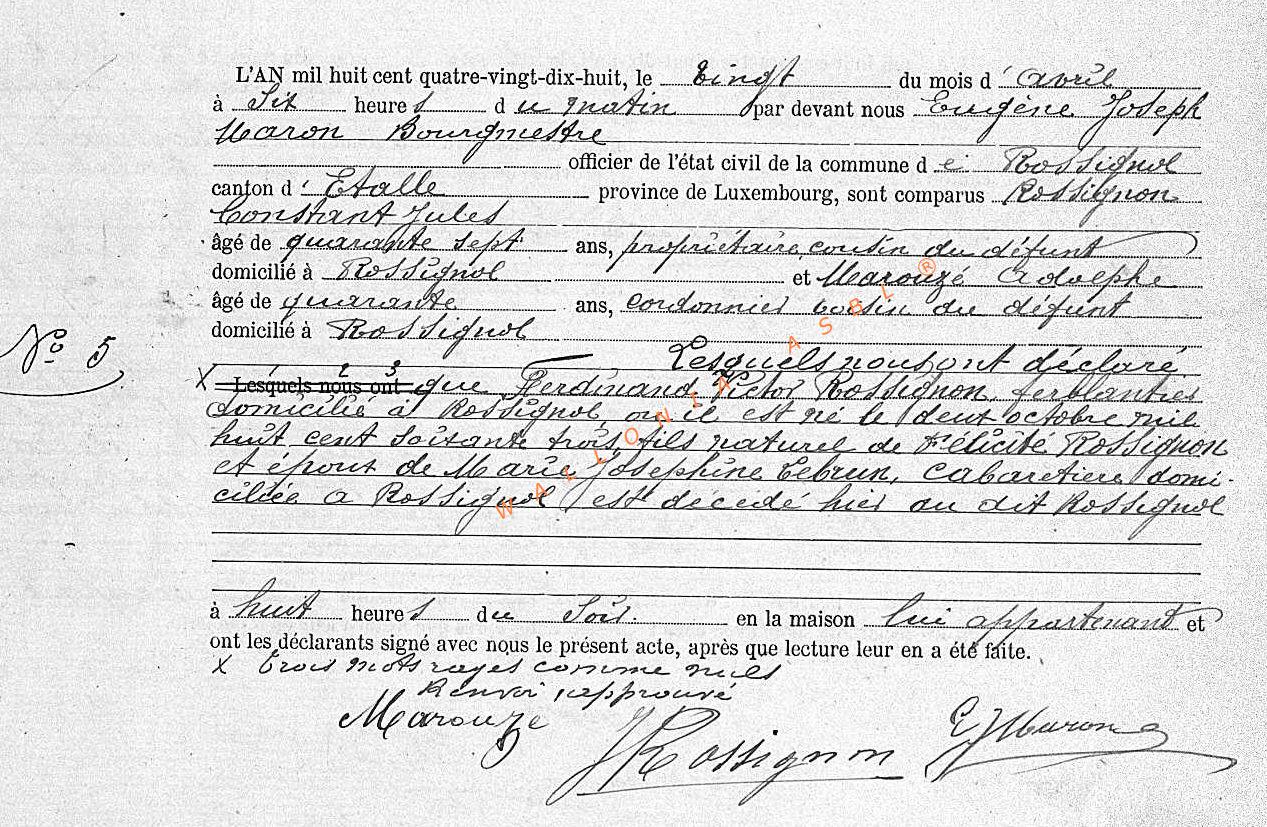 L'AN mil huit cent quatre-vingt-dix-huit, le vingt du mois d' avril
à six heure s d u matin par devant nous Eugène Joseph
Maron Bourgmestre
officier de l'état civil de la commune d e Rossignol
canton d' Etalle province de Luxembourg, sont comparus Rossignon
Constant Jules
âgé de quarante sept ans, propriétaire, cousin du défunt
domicilié à Rossignol et Marouzé Adolphe
âgé de quarante ans, cordonnier cousin du défunt
domicilié à Rossignol
N° 5
Lesquels nous ont déclaré
X Lesquels nous ont que Ferdinand Victor Rossignon, ferblantier
1 2 3
domicilié à Rossignol, où il est né le deux octobre mil
huit cent soixante trois, fils naturel de Félicité Rossignon
et époux de Marie Josephine Lebrun, cabaretière domi-
ciliée a Rossignol est décedé hier au dit Rossignol
à huit heure s du soir. en la maison lui appartenant et
ont les déclarants signé avec nous le présent acte, après que lecture leur en a été faite.
X trois mots rayés comme nuls
Renvoi approuvé
Marouzé
J Rossignon
E J Maron
WALLONIA ASBL ®